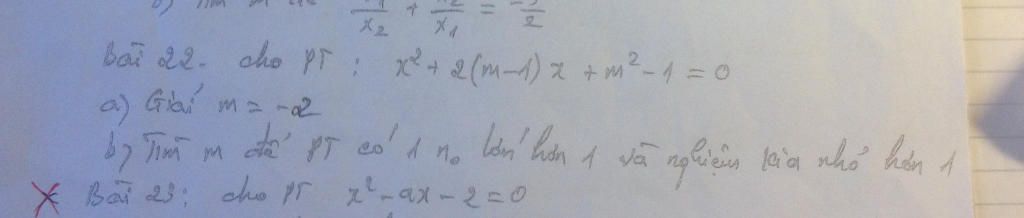 b) Tìm m để x₁/x₂ + x₂/x₁ = -5/2
Bài 22. cho PT : x² + 2(m-1)x + m² - 1 = 0
a) Giải m = -2
b) Tìm m để PT có 1 n₀ lớn hơn 1 và nghiệm kia nhỏ hơn 1
Bài 23: cho PT x² - ax - 2 = 0